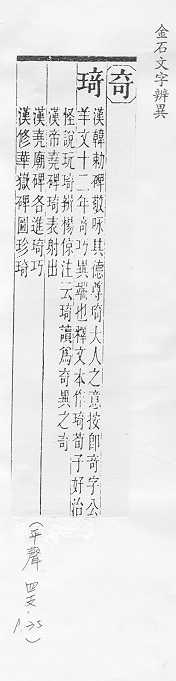 金石文字辨異
奇
琦
漢韓勅碑敬咏其德尊琦大人之意按卽奇字公
羊文十二年奇巧異端也釋文本作琦荀子好治
怪說玩琦辭楊倞注云琦讀爲奇異之奇
漢帝堯碑琦表射出
漢堯廟碑各進琦巧
漢修華嶽碑圖珍琦
(平聲 四支